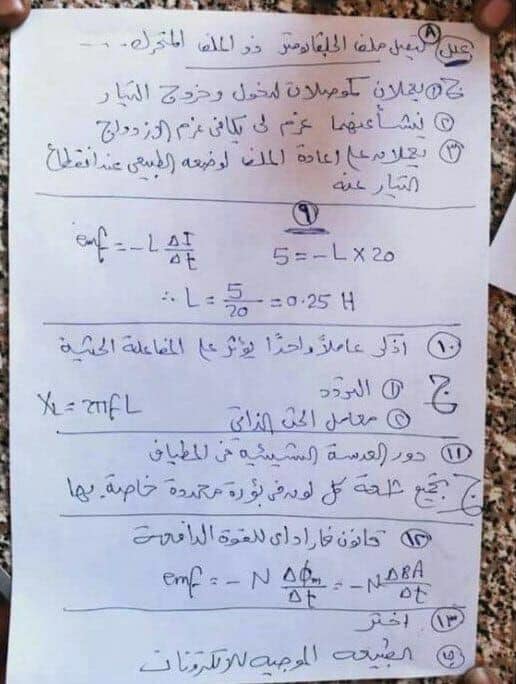 ٨
علل يتصل ملف الجلفانومتر ذو الملف المتحرك ....
ج ① يعملان كموصلات لدخول وخروج التيار
② ينشأ عنهما عزم لى يكافئ عزم الازدواج
③ يعملان على إعادة الملف لوضعه الطبيعى عند انقطاع
التيار عنه
٩
emf = - L ΔI/Δt    5 = - L × 20
∴ L = 5/20 = 0.25 H
⑩ اذكر عاملاً واحدًا يؤثر على المفاعلة الحثية
ج ① التردد
XL = 2πfL    ② معامل الحث الذاتى
⑪ دور العدسة الشيئية فى المطياف
ج تجميع أشعة كل لون فى بؤرة محددة خاصة بها
⑫ قانون فاراداى للقوة الدافعة
emf = - N Δϕm/Δt = - N ΔBA/Δt
⑬ اختر
ج الطبيعه الموجيه للإلكترونات